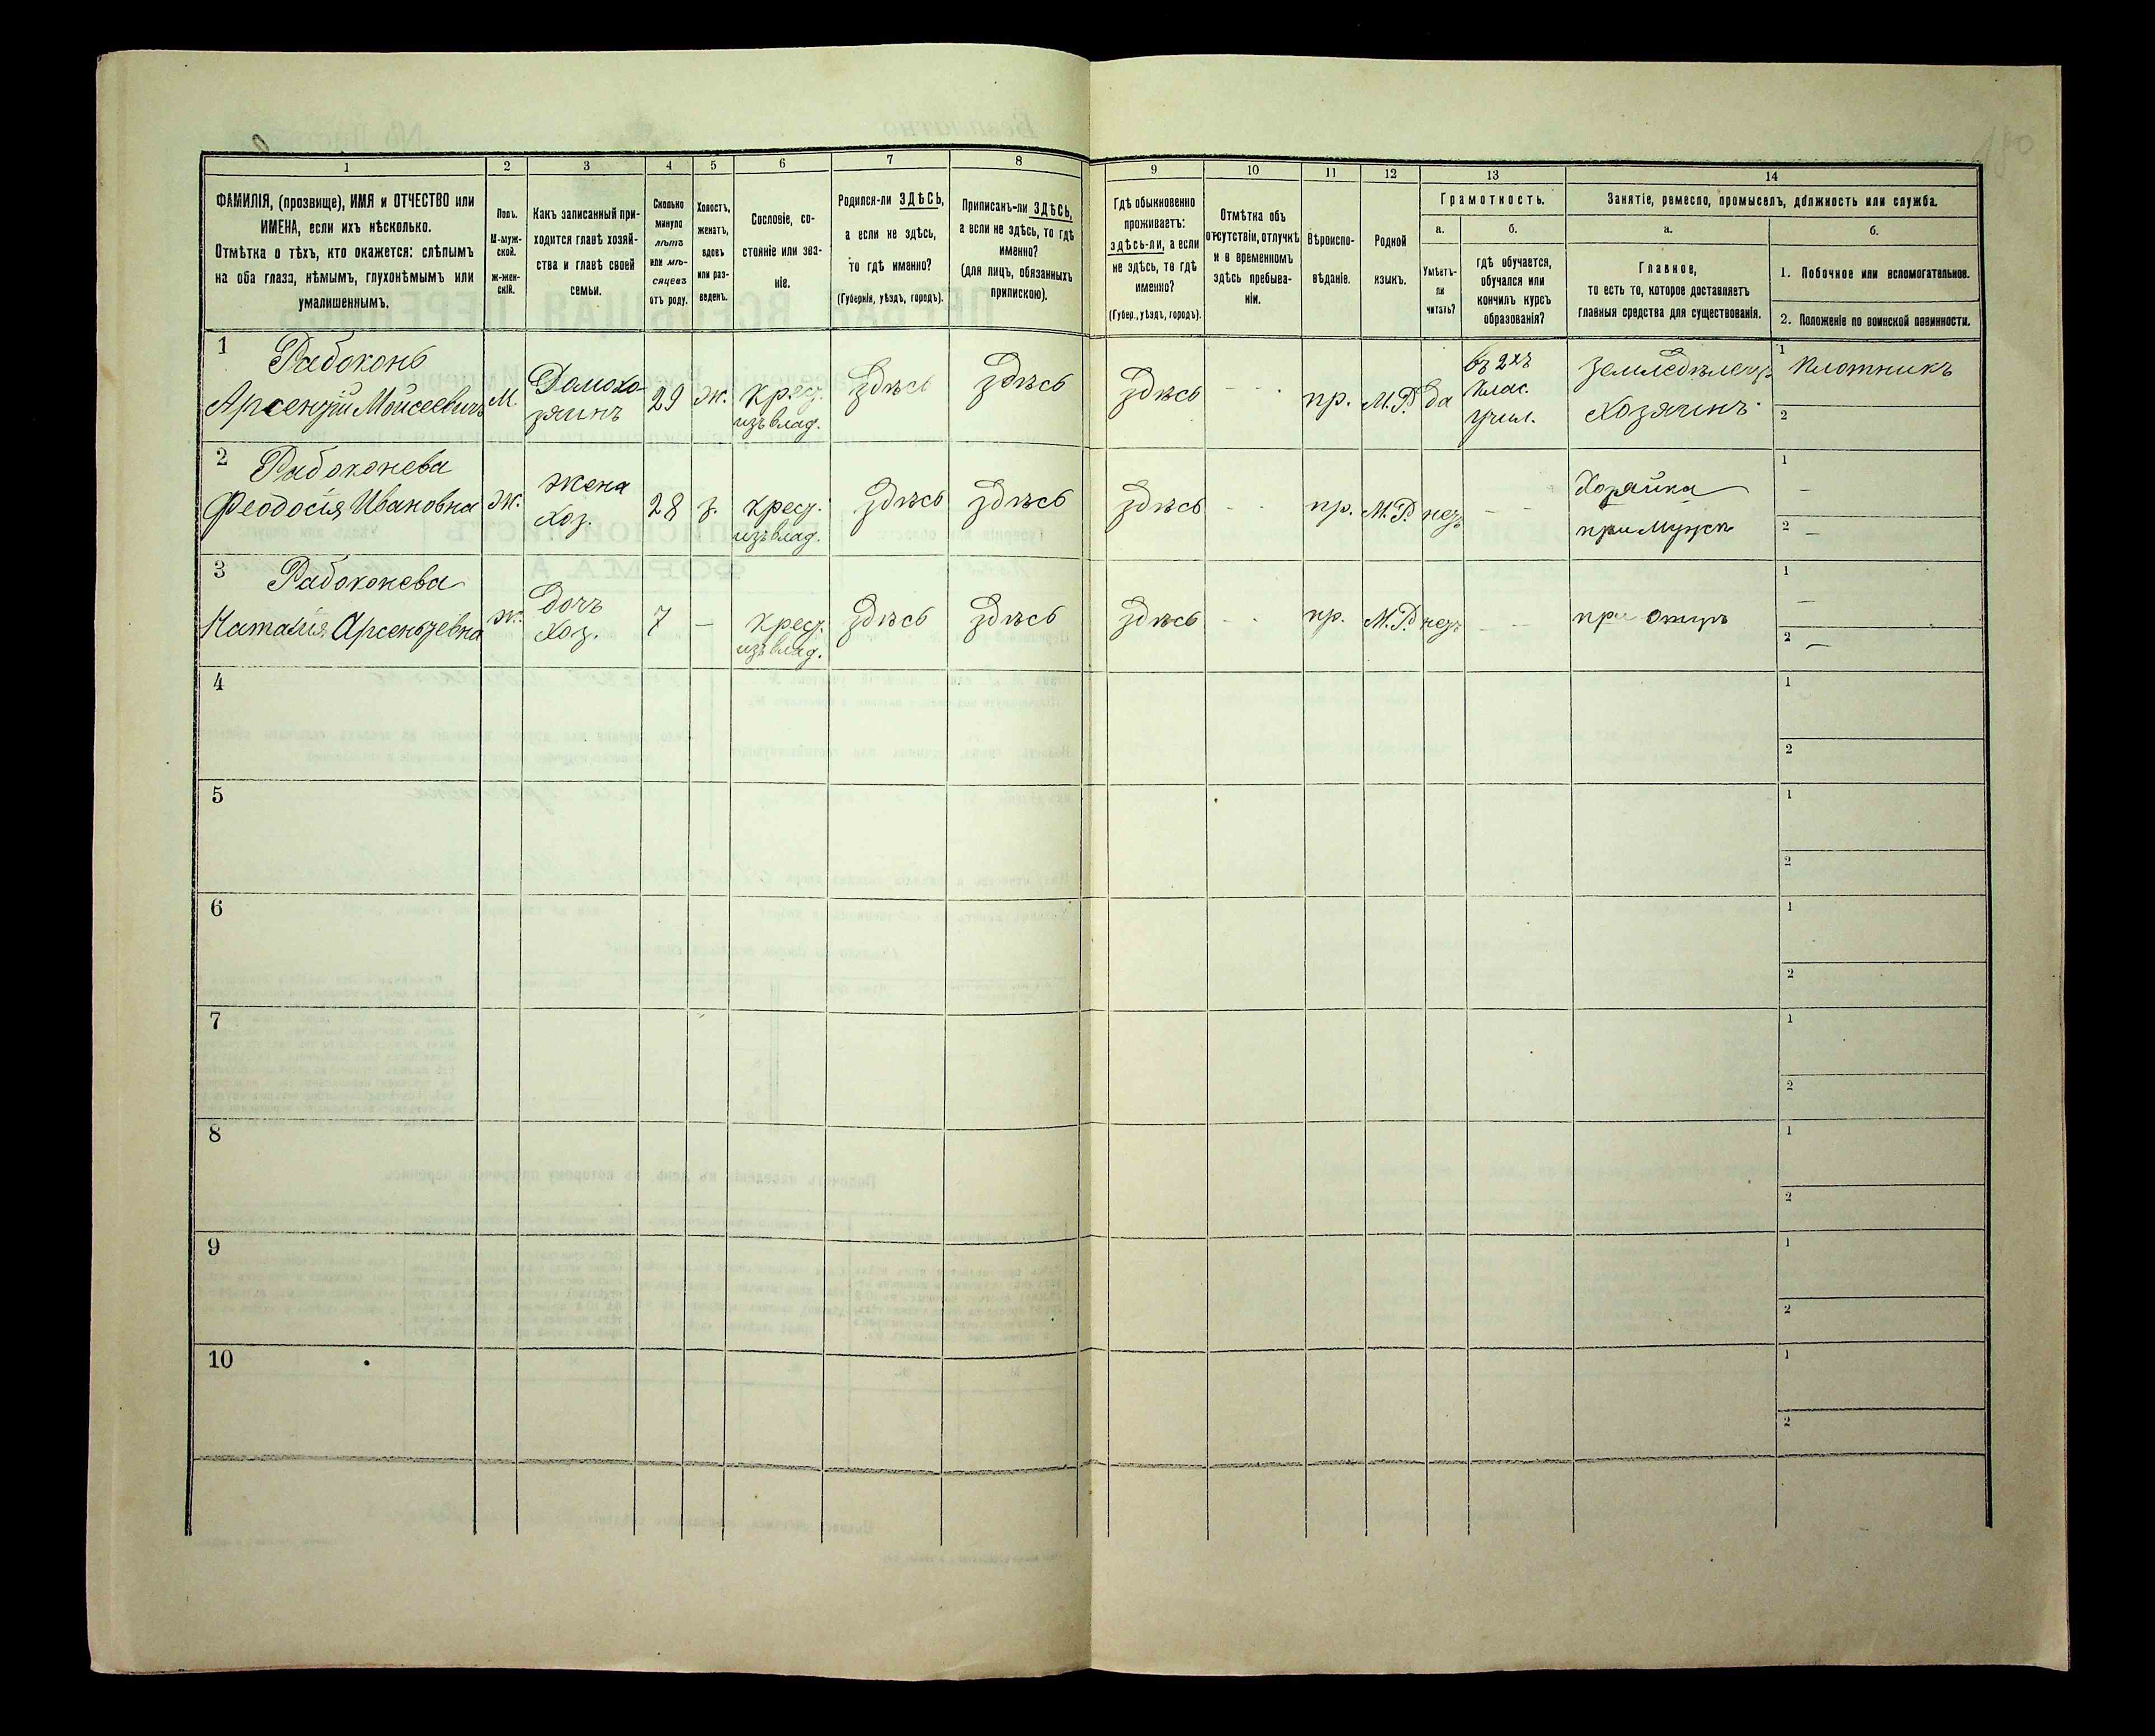 1
2
3
4
5
6
7
8
9
10
11
12
13
14
ФАМИЛІЯ, (прозвище), ИМЯ и ОТЧЕСТВО или
ИМЕНА, если ихъ нѣсколько.
Отмѣтка о тѣхъ, кто окажется: слѣпымъ
на оба глаза, нѣмымъ, глухонѣмымъ или
умалишеннымъ.
Полъ.
М-муж-
ской.
ж-жен-
скій.
Какъ записанный при-
ходится главѣ хозяй-
ства и главѣ своей
семьи.
Сколько
минуло
лѣтъ
или мѣ-
сяцевъ
отъ роду.
Холостъ,
женатъ,
вдовъ
или раз-
веденъ.
Сословіе, со-
стояніе или зва-
ніе.
Родился-ли ЗДѢСЬ,
а если не здѣсь,
то гдѣ именно?
(Губернія, уѣздъ, городъ).
Приписанъ-ли ЗДѢСЬ,
а если не здѣсь, то гдѣ
именно?
(для лицъ, обязанныхъ
припискою).
Гдѣ обыкновенно
проживаетъ:
здѣсь-ли, а если
не здѣсь, то гдѣ
именно?
(Губер., уѣздъ, городъ).
Отмѣтка объ
отсутствіи, отлучкѣ
и о временномъ
здѣсь пребыва-
ніи.
Вѣроиспо-
вѣданіе.
Родной
языкъ.
Грамотность.
а.
Умѣетъ-
ли
читать?
б.
гдѣ обучается,
обучался или
кончилъ курсъ
образованія?
Занятіе, ремесло, промыселъ, должность или служба.
а.
Главное,
то есть то, которое доставляетъ
главныя средства для существованія.
б.
1. Побочное или вспомогательное.
2. Положеніе по воинской повинности.
1
Рабоконь
Арсентій Моисеевичъ
М.
Домохо-
зяинъ
29
ж.
крест.
изъ влад.
здѣсь
здѣсь
здѣсь
- -
пр.
М.Р.
да
въ 2хъ
клас.
учил.
Земледѣлецъ
Хозяинъ
1
Плотникъ
2
2
Рабоконева
Феодосія Ивановна
Ж.
жена
хоз.
28
з.
крест.
изъ влад.
здѣсь
здѣсь
здѣсь
- -
пр.
М.Р.
нетъ
- -
Хозяйка
при мужѣ
1
—
2
—
3
Рабоконева
Наталія Арсентьевна
ж.
дочь
хоз.
7
—
крест.
изъ влад.
здѣсь
здѣсь
здѣсь
- -
пр.
М.Р.
нетъ
- -
при отцѣ
1
—
2
—
4
1
2
5
1
2
6
1
2
7
1
2
8
1
2
9
1
2
10
1
2